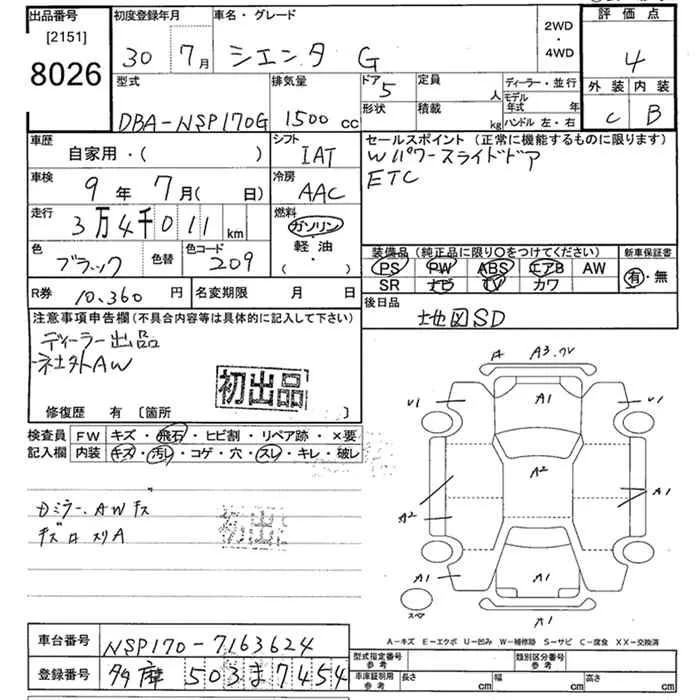 出品番号
[2151]
8026
初度登録年月
30 7月
車名・グレード
シエンタ G
2WD
・
4WD
評価点
4
外装 内装
C B
型式
DBA-NSP170G
排気量
1500 cc
ドア 5
形状
定員 人
積載 kg
ディーラー・並行
モデル年式 年
ハンドル 左・右
車歴
自家用・( )
シフト
IAT
車検
9年 7月( 日)
冷房
AAC
走行
3万4千011 km
燃料
ガソリン
・
軽・油
・
( )
色
ブラック
色替
色コード
209
R券 10,360 円
名変期限 月 日
セールスポイント(正常に機能するものに限ります)
Wパワースライドドア
ETC
装備品(純正品に限り○をつけてください)
PS PW ABS エアB AW
SR ナビ TV カワ
新車保証書
有・無
後日品
地図SD
注意事項申告欄(不具合内容等は具体的に記入して下さい)
ディーラー出品
社外AW
初出品
修復歴 有 [箇所 ]
検査員記入欄
FW キズ・飛石・ヒビ割・リペア跡・×要
内装 キズ・汚レ・コゲ・穴・スレ・キレ・破レ
Dミラー、AWキズ
キズロ スリA
初出品
A A3.7V
U1 A1 U1
A2
A2 A1
A1 A1 A1
スペア
A1
A-キズ E-エクボ U-凹み W-補修跡 S-サビ C-腐食 XX-交換済
車台番号 NSP170-7163624
登録番号 多摩 503ま7454
型式指定番号 参考
類別区分番号 参考
車庫証明用 参考
長さ cm
幅 cm
高さ cm